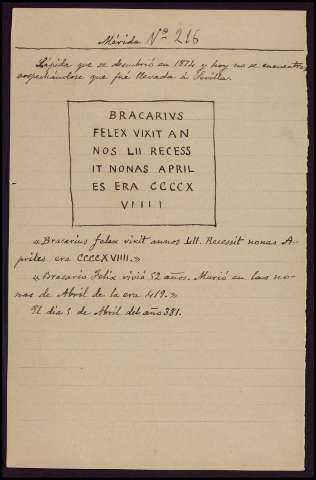 Mérida Nº 216
Lápida que se descubrió en 1874 y hoy no se encuentra,
sospechándose que fué llevada à Sevilla.
BRACARIVS
FELEX VIXIT AN
NOS LII RECESS
IT NONAS APRIL
ES ERA CCCCX
VIIII
«Bracarius felex vixit annos LII. Recessit nonas A-
priles era CCCCXVIIII.»
«Bracario Felix vivió 52 años. Murió en las no-
nas de Abril de la era 419.»
El dia 5 de Abril del año 381.